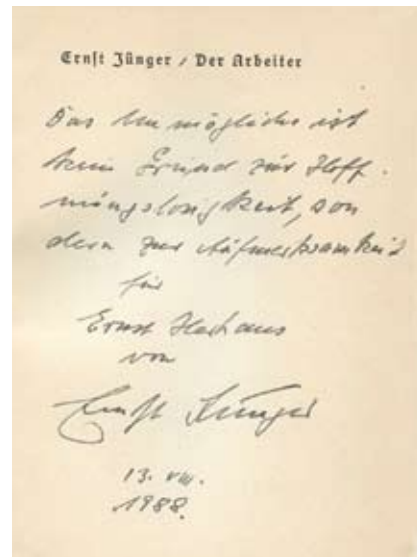 Ernst Jünger / Der Arbeiter
Das Unmögliche ist
kein Grund zur Hoff-
nungslosigkeit, son
dern zur Aufmerksamkeit
für
Ernst
von
Ernst Jünger
13. VIII.
1988.